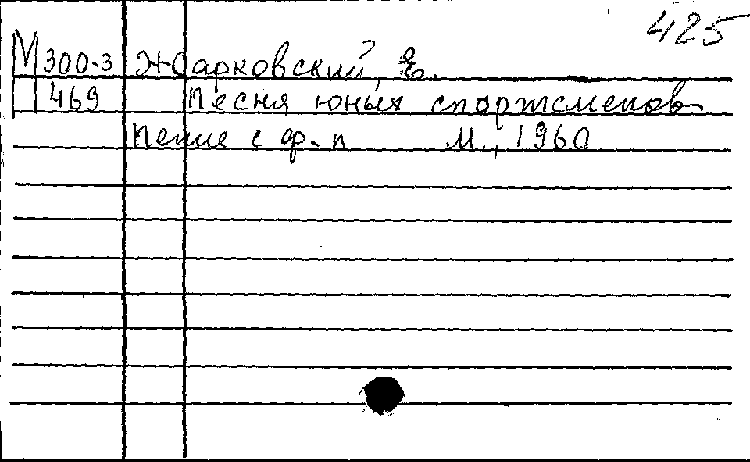 425
М 300-3 Жарковский, Е.
469 Песня юных спортсменов
Пение с ф.-п М., 1960